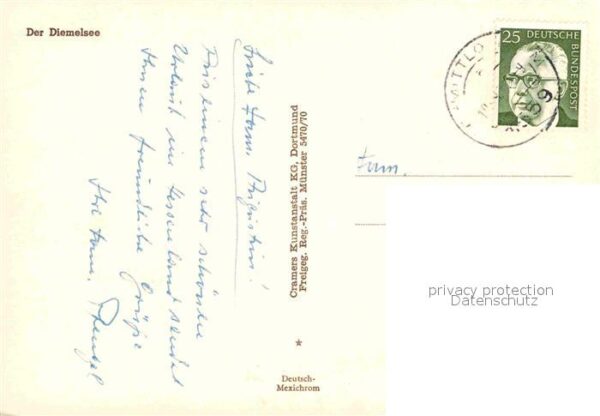 Der Diemelsee
Liebe Fam. Augustin!
Aus einem sehr schönen
Urlaub im Hessenland sendet
Ihnen freundliche Grüße
Ihre Fam.
Cramers Kunstanstalt KG, Dortmund
Freigeg. Reg.-Präs. Münster 5470/70
*
Deutsch-
Mexichrom
25
DEUTSCHE
BUNDESPOST
Fam.
privacy protection
Datenschutz